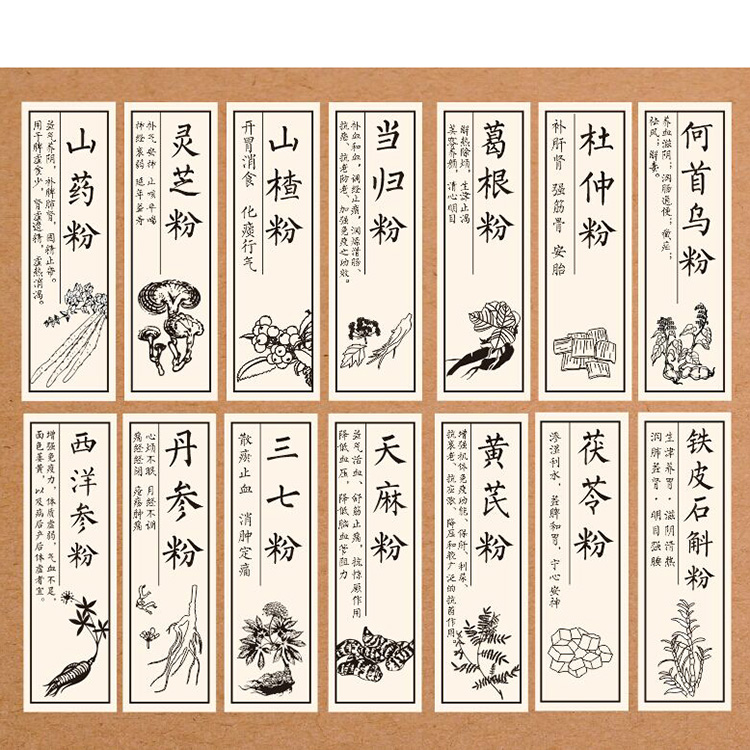 山药粉
益气养阴，补脾肺肾，固精止带。
用于脾虚食少，肾虚遗精，虚热消渴。
灵芝粉
补气安神 止咳平喘
神经衰弱 延年益寿
山楂粉
开胃消食 化瘀行气
当归粉
补血和血，调经止痛，润燥滑肠、
抗癌、抗老防老、加强免疫之功效。
葛根粉
解热除烦，生津止渴
美容养颜，清心明目
杜仲粉
补肝肾 强筋骨 安胎
何首乌粉
养血滋阴；润肠通便；截疟；
祛风；解毒。
西洋参粉
增强免疫力，体质虚弱，气血不足、
面色萎黄，以及病后产后体虚者宜。
丹参粉
心烦不眠 月经不调
痛经经闭 疮疡肿痛
三七粉
散瘀止血 消肿定痛
天麻粉
益气活血、舒筋止痛，抗惊厥作用
降低血压，降低脑血管阻力
黄芪粉
增强机体免疫功能、保肝、利尿、
抗衰老、抗应激、降压和较广泛的抗菌作用。
茯苓粉
渗湿利水，益脾和胃，宁心安神
铁皮石斛粉
生津养胃·滋阴清热
润肺益肾·明目强腰